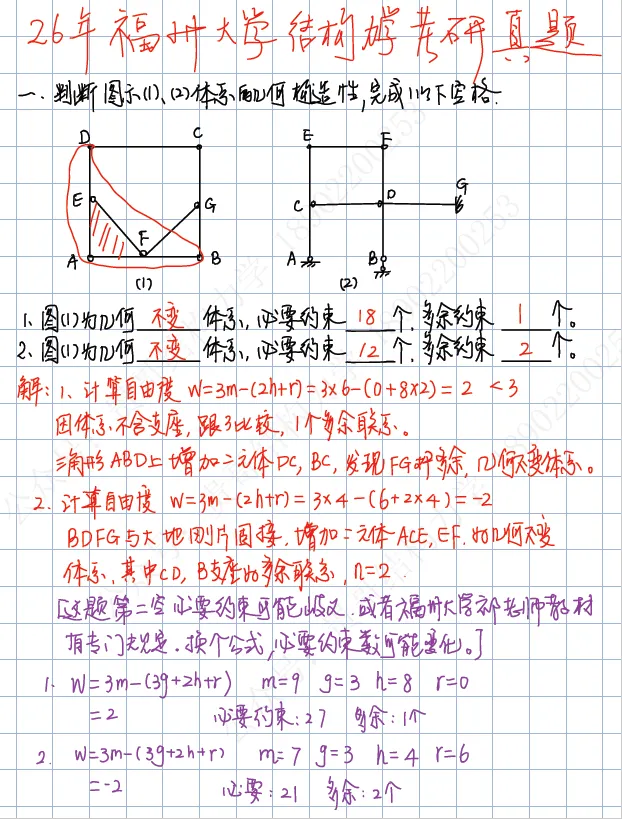 26年福州大学结构力学考研真题
一、判断图示(1)、(2)体系的几何构造性,完成以下空格.
D C E F
E G C D G
A F B A B
(1) (2)
1. 图(1)为几何 不变 体系,必要约束 18 个,多余约束 1 个。
2. 图(1)为几何 不变 体系,必要约束 12 个,多余约束 2 个。
解: 1、计算自由度 W=3m-(2h+r)=3×6-(0+8×2)=2 <3
因体系不含支座,跟3比较,1个多余联系。
三角形ABD上增加二元体DC,BC,发现FG杆多余,几何不变体系。
2. 计算自由度 W=3m-(2h+r)=3×4-(6+2×4)=-2
BDFG与大地刚片固接,增加二元体ACE,EF,为几何不变
体系,其中CD,B支座为多余联系,n=2.
[这题第二空必要约束可能歧义,或者福州大学部老师教材
有专门规定.换个公式,必要约束数可能变化。]
1. W=3m-(3g+2h+r) m=9 g=3 h=8 r=0
=2 必要约束:27 多余:1个
2. W=3m-(3g+2h+r) m=7 g=3 h=4 r=6
=-2 必要:21 多余:2个